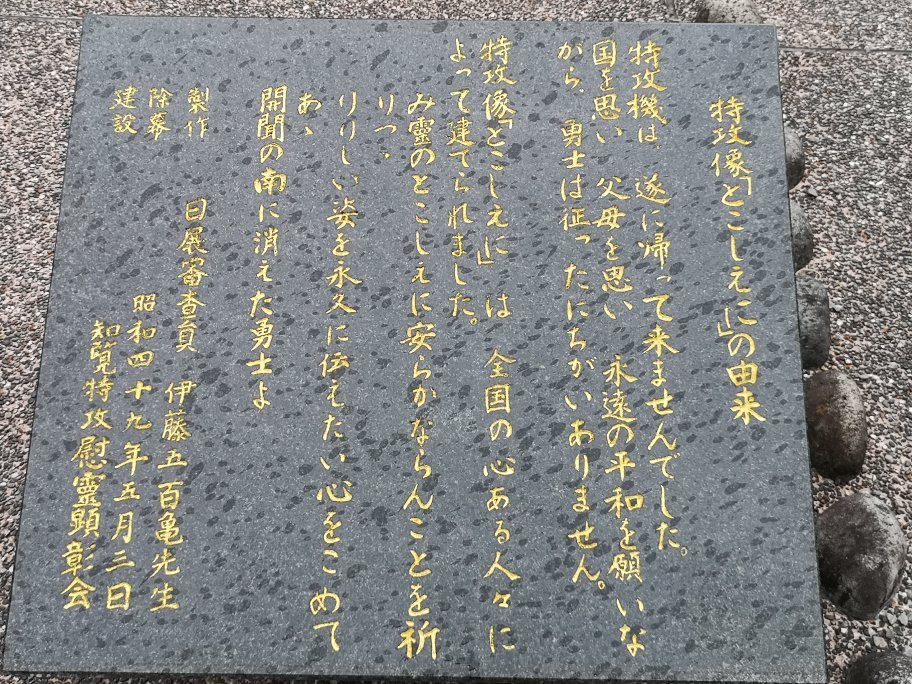 特攻像「とこしえに」の由来
特攻機は、遂に帰って来ませんでした。
国を思い 父母を思い 永遠の平和を願いな
がら、勇士は征ったにちがいありません。
特攻像「とこしえに」は 全国の心ある人々に
よって建てられました。
み靈のとこしえに安らかならんことを祈
りつゝ
りりしい姿を永久に伝えたい心をこめて
あゝ
開聞の南に消えた勇士よ
製作 日展審査員 伊藤五百亀先生
除幕 昭和四十九年五月三日
建設 知覧特攻慰靈顕彰会